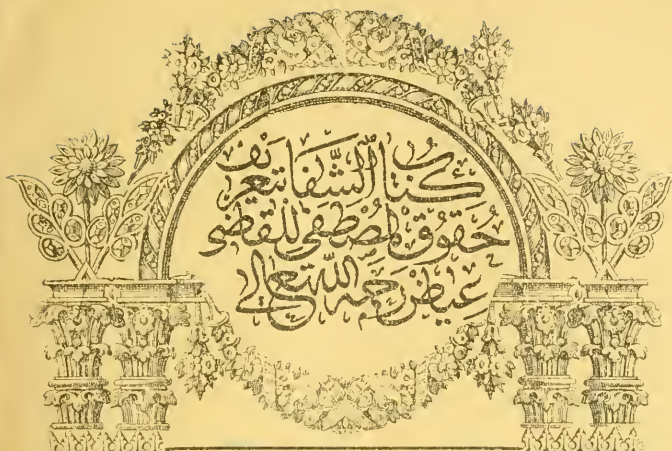 كتاب الشفا بتعريف
حقوق المصطفى للقاضي
عياض رحمه الله تعالى